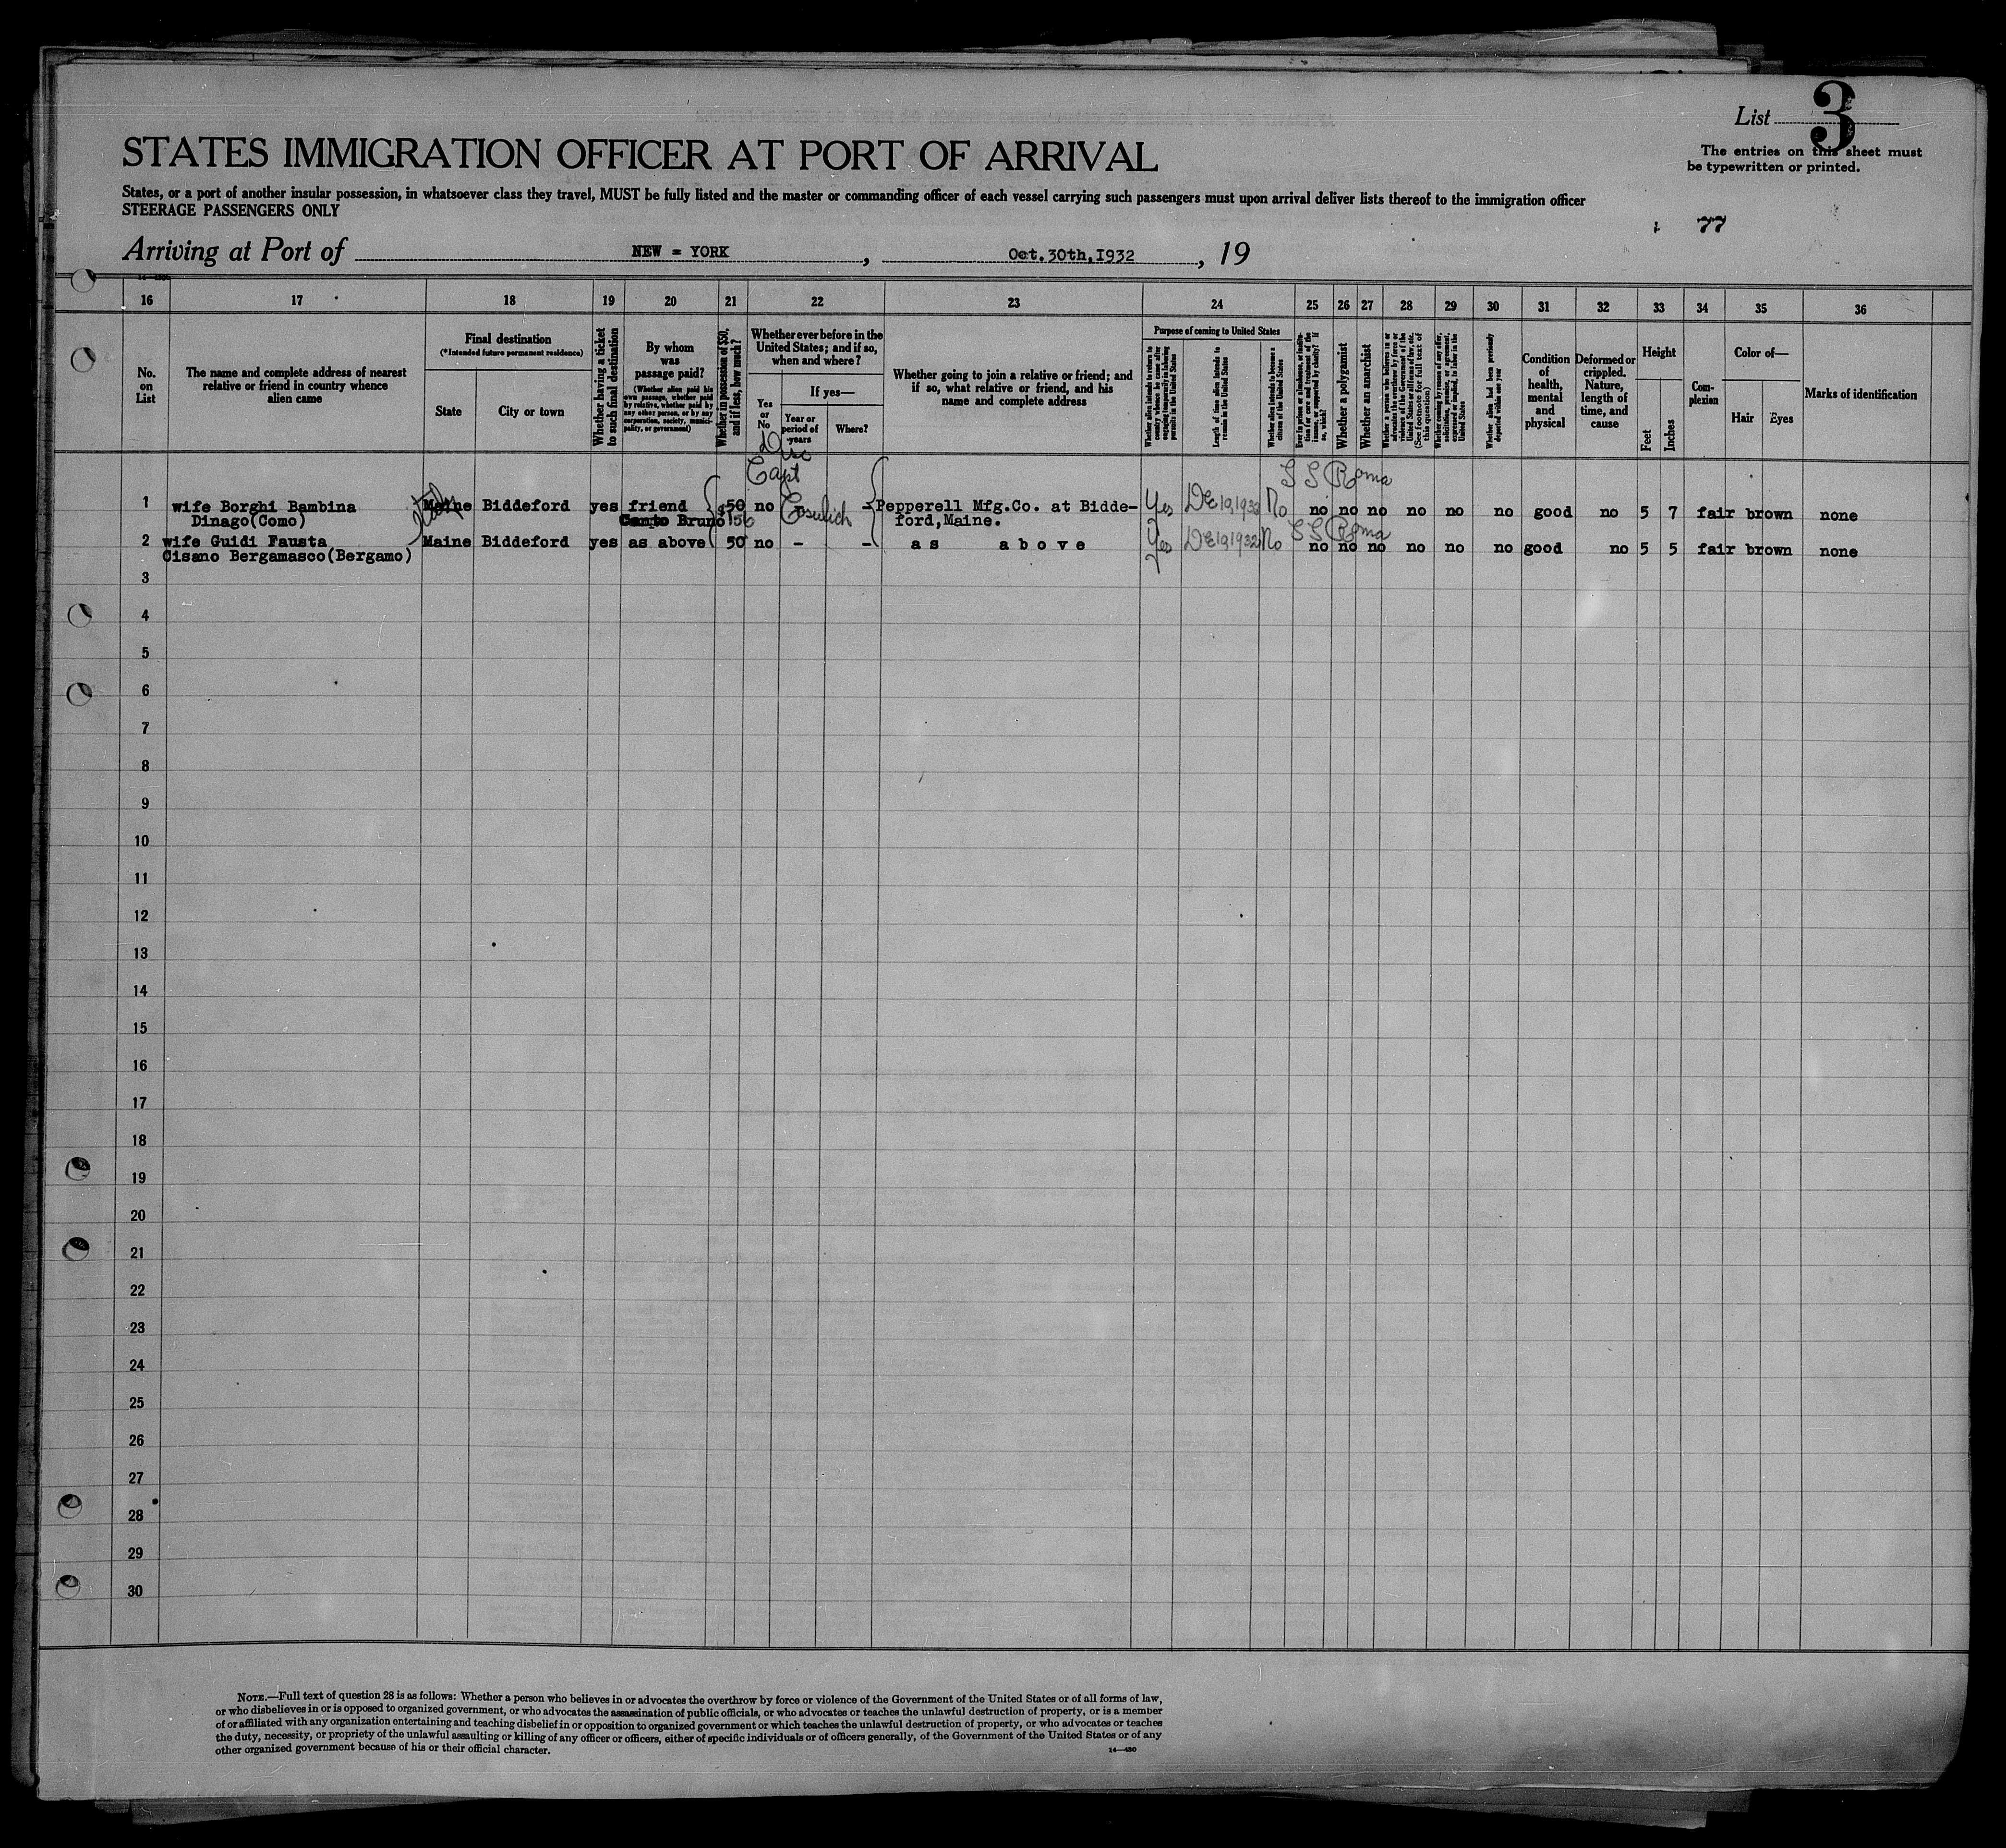 List 3
The entries on this sheet must
be typewritten or printed.
STATES IMMIGRATION OFFICER AT PORT OF ARRIVAL
States, or a port of another insular possession, in whatsoever class they travel, MUST be fully listed and the master or commanding officer of each vessel carrying such passengers must upon arrival deliver lists thereof to the immigration officer
STEERAGE PASSENGERS ONLY
77
Arriving at Port of NEW = YORK, Oct.30th,1932, 19
16 17 18 19 20 21 22 23 24 25 26 27 28 29 30 31 32 33 34 35 36
No.
on
List
The name and complete address of nearest
relative or friend in country whence
alien came
Final destination
(*Intended future permanent residence)
State
City or town
Whether having a ticket
to such final destination
By whom
was
passage paid?
(Whether alien paid his
own passage, whether paid
by relative, whether paid by
any other person, or by any
corporation, society, munici-
pality, or government)
Whether in possession of $50,
and if less, how much?
Whether ever before in the
United States; and if so,
when and where?
Yes
or
No
If yes—
Year or
period of
years
Where?
Whether going to join a relative or friend; and
if so, what relative or friend, and his
name and complete address
Purpose of coming to United States
Whether alien intends to return to
country whence he came after
engaging temporarily in laboring
pursuits in the United States
Length of time alien intends to
remain in the United States
Whether alien intends to become a
citizen of the United States
Ever in prison or almshouse, or institu-
tion for care and treatment of the
insane, or supported by charity? If
so, which?
Whether a polygamist
Whether an anarchist
Whether a person who believes in or
advocates the overthrow by force or
violence of the Government of the
United States or all forms of law, etc.
(See footnote for full text of
this question)
Whether coming by reason of any offer,
solicitation, promise, or agreement,
expressed or implied, to labor in the
United States
Whether alien had been previously
deported within one year
Condition
of
health,
mental
and
physical
Deformed or
crippled.
Nature,
length of
time, and
cause
Height
Feet
Inches
Com-
plexion
Color of—
Hair
Eyes
Marks of identification
Disc
Capt
Cosulich
S S Roma
1 wife Borghi Bambina Maine Biddeford yes friend $50 no - Pepperell Mfg.Co. at Bidde- Yes No no no no no no no good no 5 7 fair brown none
Dinago(Como) Canto Bruno 156 ford,Maine.
S S Roma
2 wife Guidi Fausta Maine Biddeford yes as above 50 no - - as above Yes No no no no no no no good no 5 5 fair brown none
Cisano Bergamasco(Bergamo)
3
4
5
6
7
8
9
10
11
12
13
14
15
16
17
18
19
20
21
22
23
24
25
26
27
28
29
30
NOTE.—Full text of question 28 is as follows: Whether a person who believes in or advocates the overthrow by force or violence of the Government of the United States or of all forms of law,
or who disbelieves in or is opposed to organized government, or who advocates the assassination of public officials, or who advocates or teaches the unlawful destruction of property, or is a member
of or affiliated with any organization entertaining and teaching disbelief in or opposition to organized government or which teaches the unlawful destruction of property, or who advocates or teaches
the duty, necessity, or propriety of the unlawful assaulting or killing of any officer or officers, either of specific individuals or of officers generally, of the Government of the United States or of any
other organized government because of his or their official character.
14—430